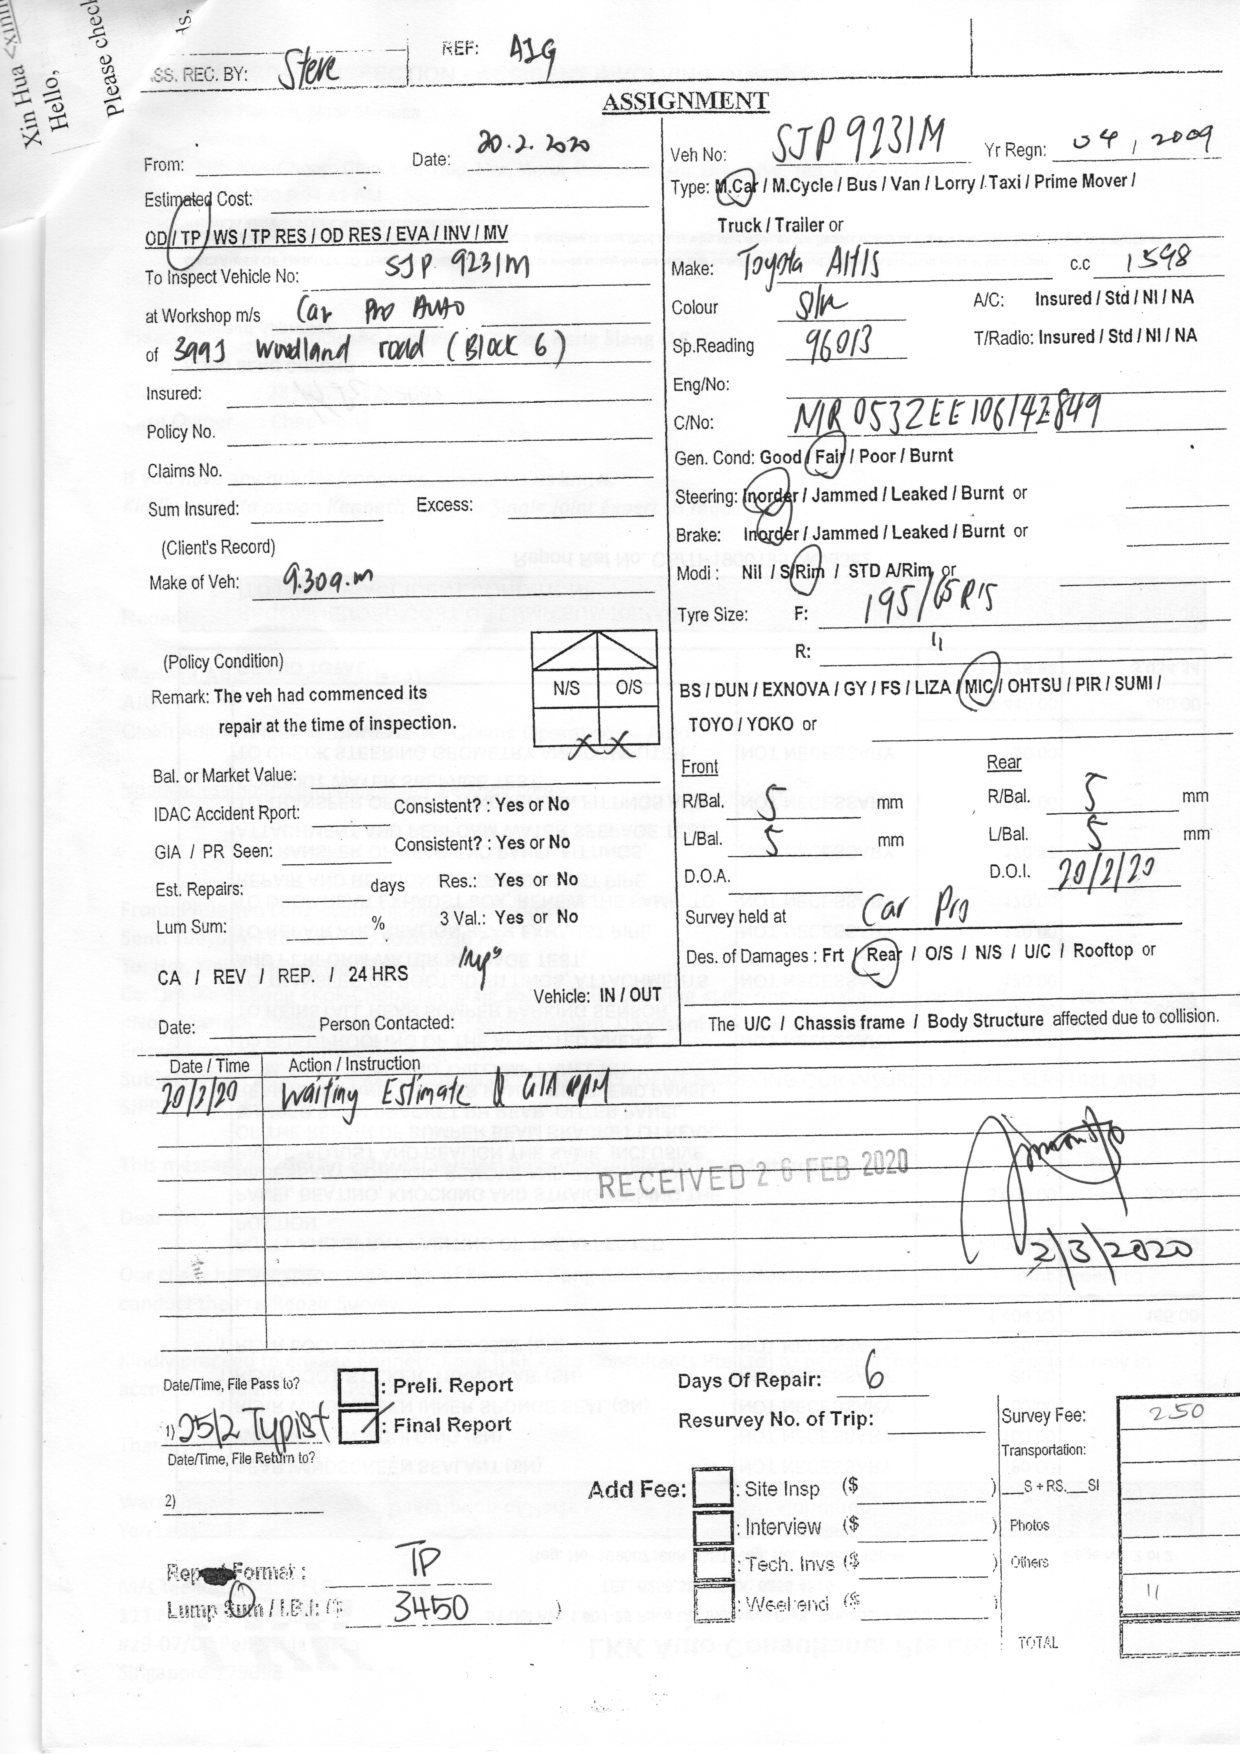 Xin Hua <xinh
Hello,
Please check
SS. REC. BY: Steve
REF: AIG
ASSIGNMENT
From:
Date: 20.2.2020
Estimated Cost:
OD / TP / WS / TP RES / OD RES / EVA / INV / MV
To Inspect Vehicle No: SJP 9231M
at Workshop m/s Car Pro Auto
of 3993 Woodland road (Block 6)
Insured:
Policy No.
Claims No.
Sum Insured: Excess:
(Client's Record)
Make of Veh: 9.30a.m
(Policy Condition)
Remark: The veh had commenced its
repair at the time of inspection.
N/S O/S
X X
Bal. or Market Value:
IDAC Accident Rport: Consistent? : Yes or No
GIA / PR Seen: Consistent? : Yes or No
Est. Repairs: days Res.: Yes or No
Lum Sum: % 3 Val.: Yes or No
CA / REV / REP. / 24 HRS
Vehicle: IN / OUT
Date: Person Contacted:
Veh No: SJP 9231M Yr Regn: 04, 2009
Type: M.Car / M.Cycle / Bus / Van / Lorry / Taxi / Prime Mover /
Truck / Trailer or
Make: Toyota Altis c.c 1598
Colour A/C: Insured / Std / NI / NA
Sp.Reading 96013 T/Radio: Insured / Std / NI / NA
Eng/No:
C/No: NIR0532EE106142849
Gen. Cond: Good / Fair / Poor / Burnt
Steering: Inorder / Jammed / Leaked / Burnt or
Brake: Inorder / Jammed / Leaked / Burnt or
Modi : Nil / S/Rim / STD A/Rim or
Tyre Size: F: 195/65R15
R: "
BS / DUN / EXNOVA / GY / FS / LIZA / MIC / OHTSU / PIR / SUMI /
TOYO / YOKO or
Front Rear
R/Bal. 5 mm R/Bal. 5 mm
L/Bal. 5 mm L/Bal. 5 mm
D.O.A. D.O.I. 20/2/20
Survey held at Car Pro
Des. of Damages : Frt / Rear / O/S / N/S / U/C / Rooftop or
The U/C / Chassis frame / Body Structure affected due to collision.
Date / Time Action / Instruction
20/2/20 Waiting Estimate & GIA
RECEIVED 26 FEB 2020
2/3/2020
Date/Time, File Pass to? : Preli. Report
1) 25/2 Typist : Final Report
Date/Time, File Return to?
2)
Days Of Repair: 6
Resurvey No. of Trip:
Add Fee: : Site Insp ($ )
: Interview ($ )
: Tech. Invs ($ )
: Weekend ($ )
Survey Fee: 250
Transportation:
__S + RS.__SI
Photos
Others
11
TOTAL
Report Format : TP
Lump Sum / I.B.I: ($ 3450 )